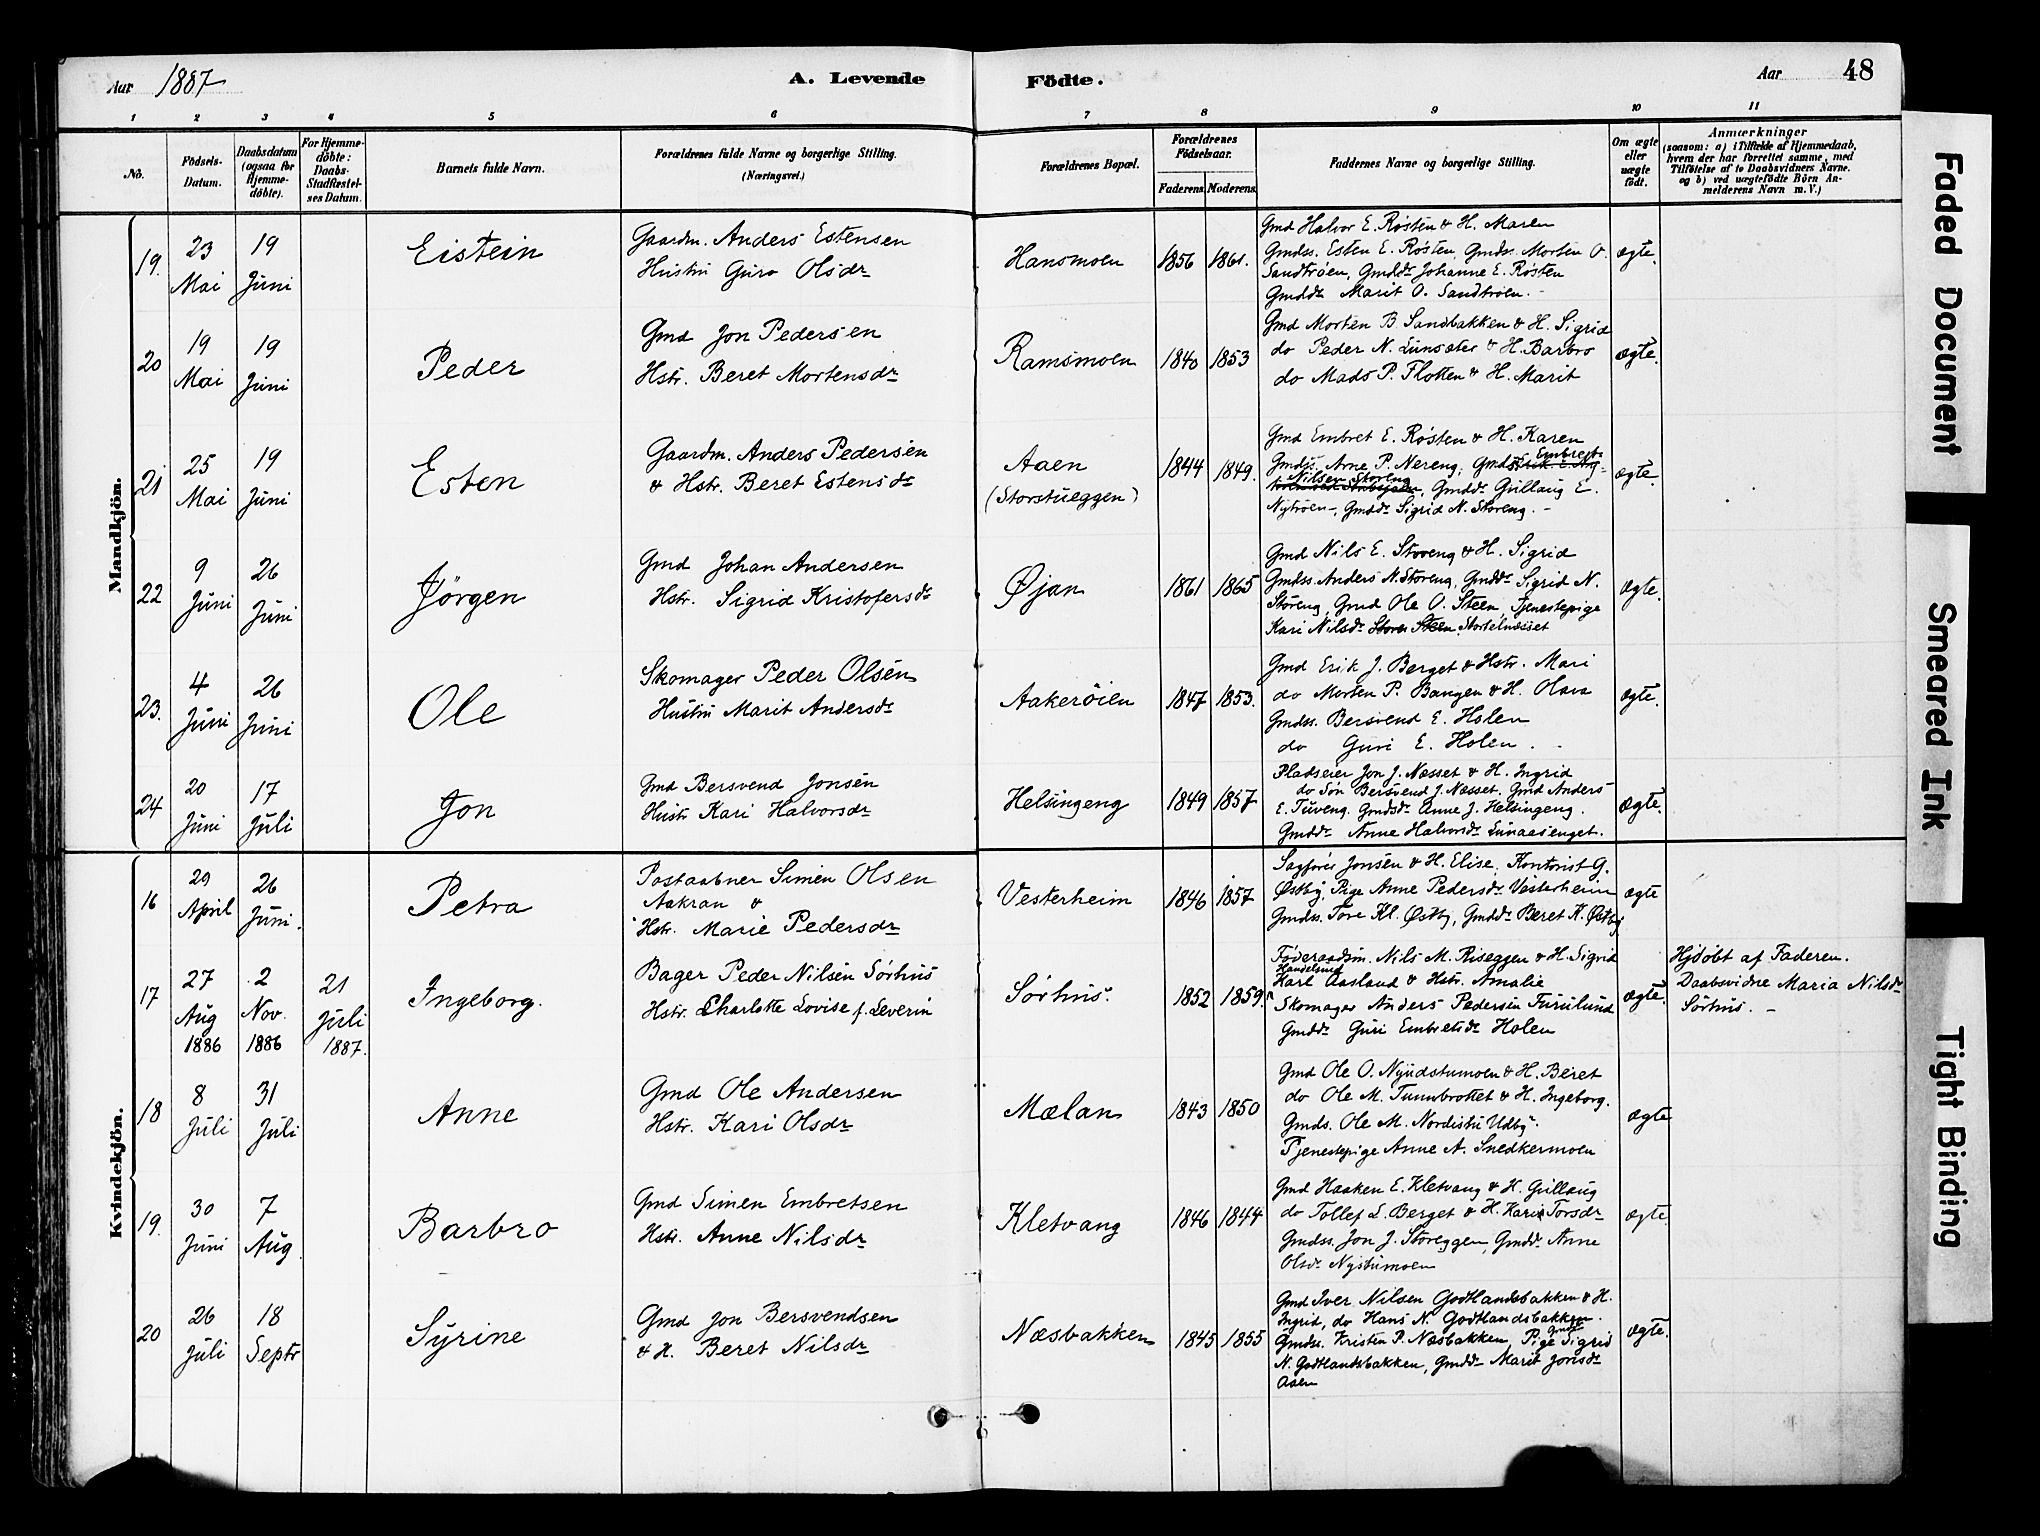 Aar 1887
A. Levende
Födte.
Aar
48
1 2 3 4 5 6 7 8 9 10 11
No.
Födsels-Datum.
Daabsdatum (ogsaa for Hjemme-döbte).
For Hjemme-döbte: Daabs-Stadfæstel-ses Datum.
Barnets fulde Navn.
Forældrenes fulde Navne og borgerlige Stilling.
(Næringsvei.)
Forældrenes Bopæl.
Forældrenes Födselsaar.
Faderens. Moderens.
Faddernes Navne og borgerlige Stilling.
Om ægte eller uægte födt.
Anmærkninger
(saasom: a) i Tilfælde af Hjemmedaab,
hvem der har forrettet samme, med
Tilföielse af to Daabsvidners Navne.
og b) ved uægtefödte Börn An-
melderens Navn m. V.)
Mandkjön.
19. 23 Mai 19 Juni Eistein
Gaardm. Anders Estensen
Hustru Guro Olsdr
Hansmoen 1856 1861.
Gmd Halvor E. Røsten & H. Maren
Gmdss. Esten E. Røsten, Gmdss. Morten O.
Sandtrøen, Gmdds Johanne E. Røsten
Gmddr Marit O. Sandtrøen.
ægte.
20 19 Mai 19 Juni Peder
Gmd Jon Pedersen
Hstr. Beret Mortensdr
Ramsmoen 1840 1853
Gmd Morten B. Sandbakken & H. Sigrid
do Peder N. Lunsæter & H. Barbro
do Mads P. Flotten & H. Marit
ægte.
21 25 Mai 19 Juni Esten
Gaardm. Anders Pedersen
& Hstr. Beret Estensdr
Aaen
(Storstueggen)
1844 1849.
Gmd Embret E. Røsten & H. Karen
Gmdss. Arne P. Nereng, Gmdss Embret
Nilsen Storeng, Gmddr Gullaug E.
Nytrøen, Gmddr Sigrid N. Storeng.
ægte.
22 9 Juni 26 Juni Jörgen
Gmd Johan Andersen
Hstr. Sigrid Kristofersdr
Øjan 1861 1865
Gmd Nils E. Storeng & H. Sigrid
Gmdss. Anders N. Storeng, Gmddr Sigrid N.
Storeng, Gmd Ole O. Steen, Tjenestepige
Kari Nilsdr Steen
ægte.
23. 4 Juni 26 Juni Ole
Skomager Peder Olsen
Hustru Marit Andersdr
Aakerøien 1847 1853.
Gmd Erik J. Berget & Hstr. Mari
do Morten P. Bangen & H. Olava
Gmdss. Bersvend E. Holen
do Guri E. Holen.
ægte.
24 20 Juni 17 Juli Jon
Gmd Bersvend Jonsen
Hustr Kari Halvorsdr
Helsingeng 1849 1857
Pladseier Jon J. Næsset & H. Ingrid
do Søn Bersvend J. Næsset. Gmd Anders
E. Tuveng. Gmdsdr Anne J. Helsingeng.
Gmddr Anne Halvorsdr Lunaasenget.
ægte.
Kvindekjön.
16 29 April 26 Juni. Petra
Postaabner Simen Olsen
Aakran &
Hstr. Marie Pedersdr
Vesterheim 1846 1857
Sagfører Jonsen & H. Elise, Kontorist G.
Østby, Pige Anne Pedersdr Vesterheim
Gmdss. Tore Kl. Østby, Gmddr Beret K. Østby
ægte
17 27 Aug 1886 2 Nov. 1886 21 Juli 1887. Ingeborg.
Bager Peder Nilsen Sörhus
Hstr. Charlotte Lovise f. Severin
Sörhus. 1852 1859.
Føderaadsm. Nils M. Riseggen & H. Sigrid
Handelsmd
Karl Aasland & Hstr. Amalie
Skomager Anders Pedersen Furulund
Gmddr Guri Embretsdr Holen
ægte.
Hjdöbt af Faderen.
Daabsvidne Maria Nilsdr
Sörhus.
18 8 Juli 31 Juli Anne
Gmd Ole Andersen
Hstr. Kari Olsdr
Mælan 1843 1850
Gmd Ole O. Nyudstumoen & H. Beret
do Ole M. Tunnbrottet & H. Ingeborg.
Gmds. Ole M. Nordistu Udby.
Tjenestepige Anne A. Snedkermoen
ægte
19. 30 Juni 7 Aug Barbro
Gmd Simen Embretsen
Hstr. Anne Nilsdr
Kletvang 1846 1844
Gmd Haaken E. Kletvang & H. Gullaug
do Tollef L. Berget & H. Kari Torsdr
Gmdss. Jon J. Storeggen, Gmdd. Anne
Olsdr Nystumoen
ægte.
20 26 Juli 18 Septr Syrine
Gmd Jon Bersvendsen
& H. Beret Nilsdr
Næsbakken 1845 1855
Gmd Iver Nilsen Godtlandsbakken & H.
Ingrid, do Hans N. Godtlandsbakken.
Gmdss. Kristen P. Næsbakken, Pige Sigrid
N. Godtlandsbakken, Gmddr Marit Jonsdr
Aaen
ægte.
Faded Document
Smeared Ink
Tight Binding